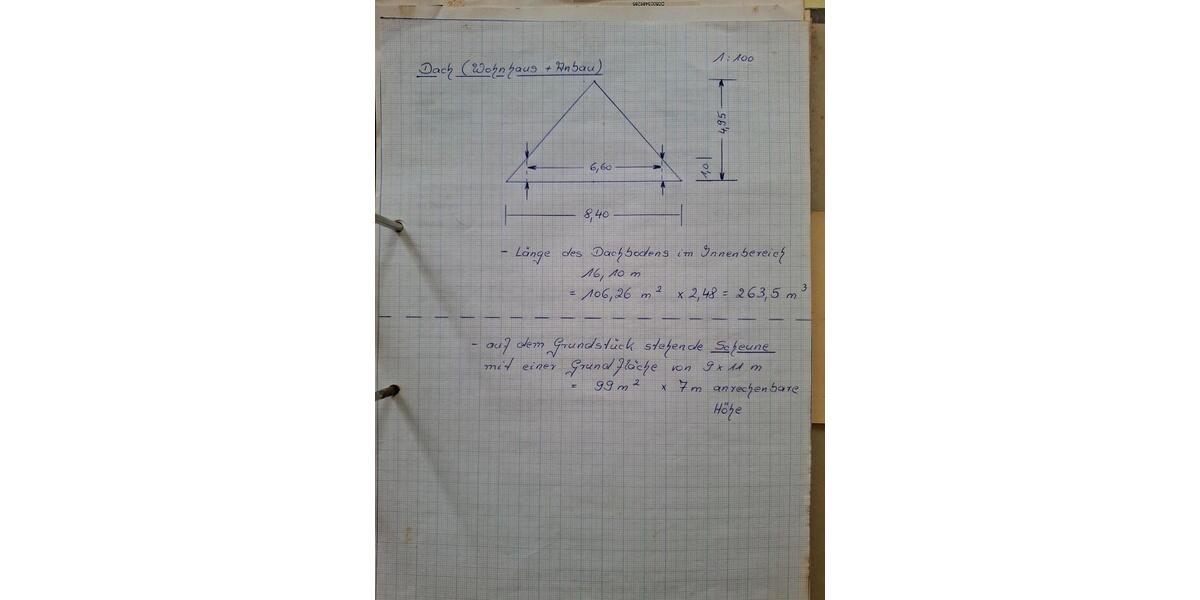 Dach (Wohnhaus + Anbau)
1:100
4,95
6,60
1,0
8,40
- Länge des Dachbodens im Innenbereich
16,10 m
= 106,26 m² x 2,48 = 263,5 m³
- auf dem Grundstück stehende Scheune
mit einer Grundfläche von 9 x 11 m
= 99 m² x 7 m anrechenbare
Höhe